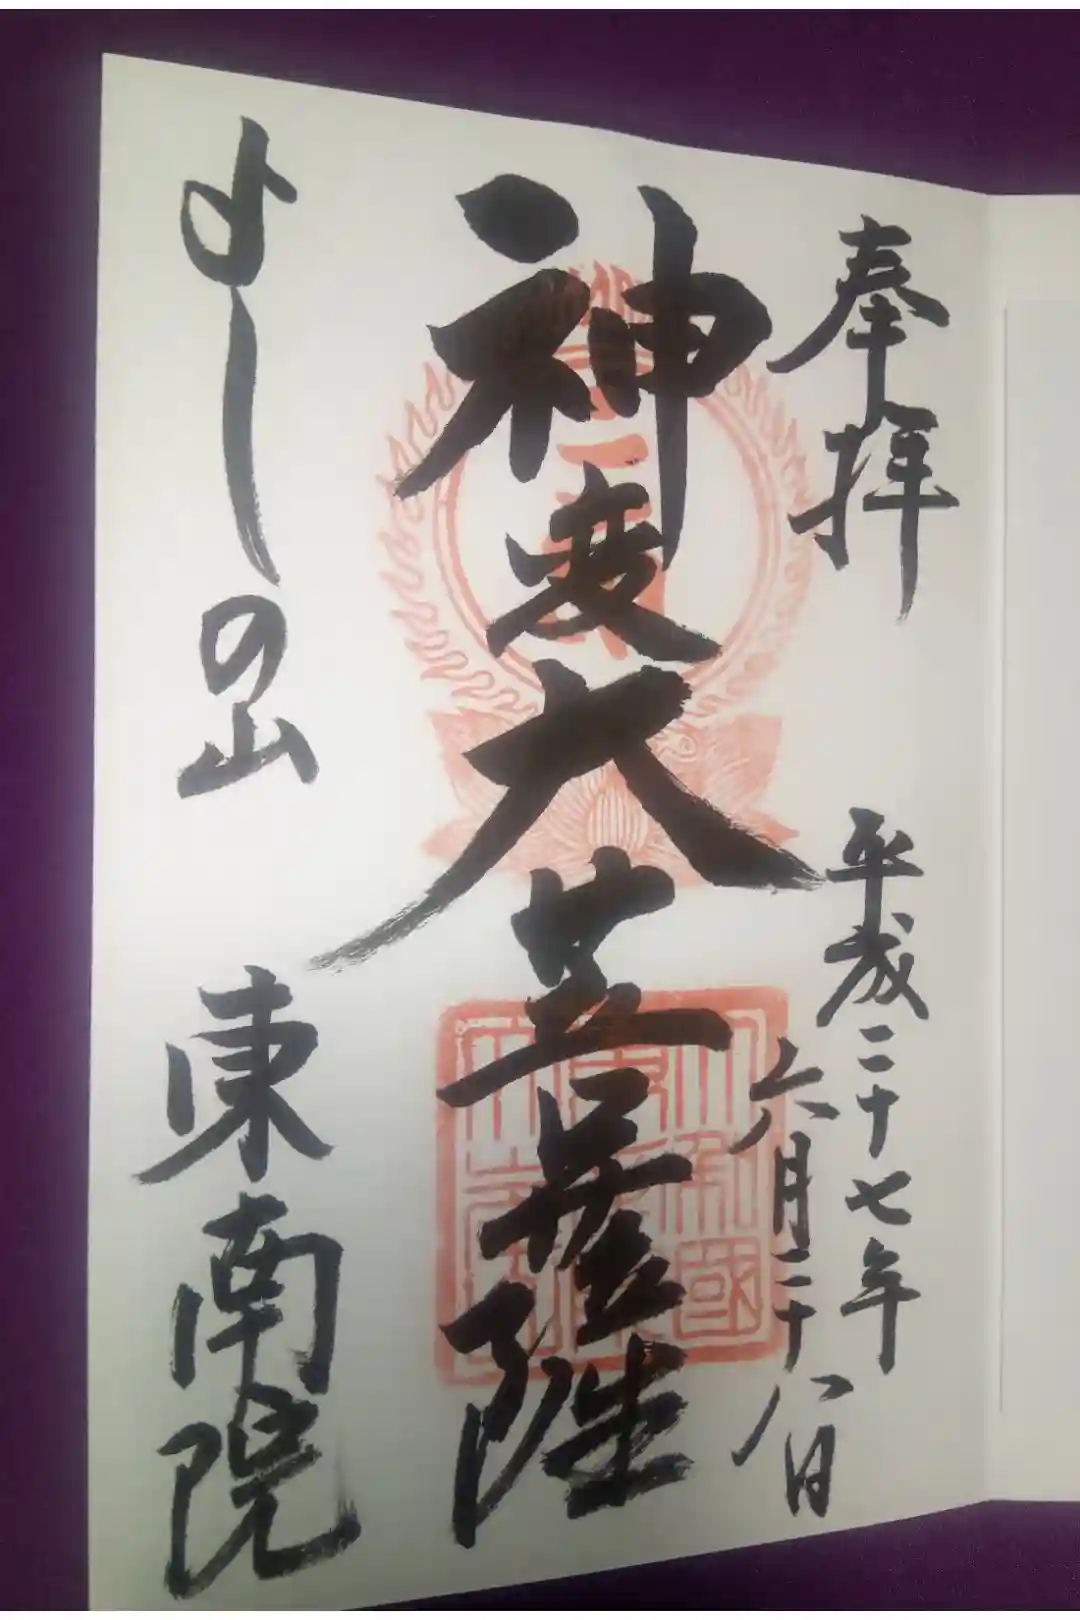 奉拝
平成二十七年
六月二十八日
神変大菩薩
よしの山
東南院